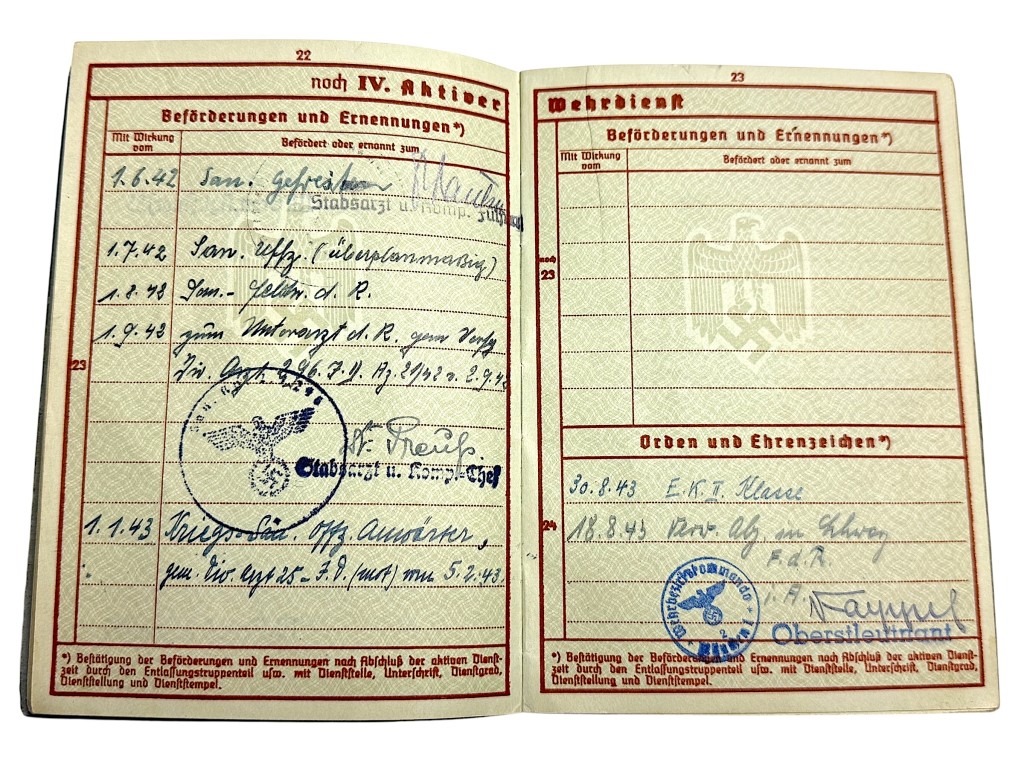 22
noch IV. Aktiver
Beförderungen und Ernennungen*)
Mit Wirkung vom
Befördert oder ernannt zum
1.6.42 San. Gefreiter
Stabsarzt u. Komp.
1.7.42 San. Uffz. (überplanmäßig)
1.8.42 San.- Feldw. d. R.
1.9.42 zum Unterarzt d. R. gem Verfg
23
Div. Arzt 296. J.D. Az. 21/42 v. 2.9.42
Dr. Preuß.
Stabsarzt u. Komp.-Chef
1.1.43 Kriegs-San. Offz. Anwärter,
gem. Div. Arzt 25. J.D. (mot) vom 5.2.43.
*) Bestätigung der Beförderungen und Ernennungen nach Abschluß der aktiven Dienst-
zeit durch den Entlassungstruppenteil usw. mit Dienststelle, Unterschrift, Dienstgrad,
Dienststellung und Dienststempel.
23
Wehrdienst
Beförderungen und Ernennungen*)
Mit Wirkung vom
Befördert oder ernannt zum
noch
23
Orden und Ehrenzeichen*)
30.8.43 E.K. II. Klasse
24
18.8.43 Verw. Abz. in Schwarz
F.d.R.
i. A.
Wehrbezirkskommando
Oberstleutnant
*) Bestätigung der Beförderungen und Ernennungen nach Abschluß der aktiven Dienst-
zeit durch den Entlassungstruppenteil usw. mit Dienststelle, Unterschrift, Dienstgrad,
Dienststellung und Dienststempel.